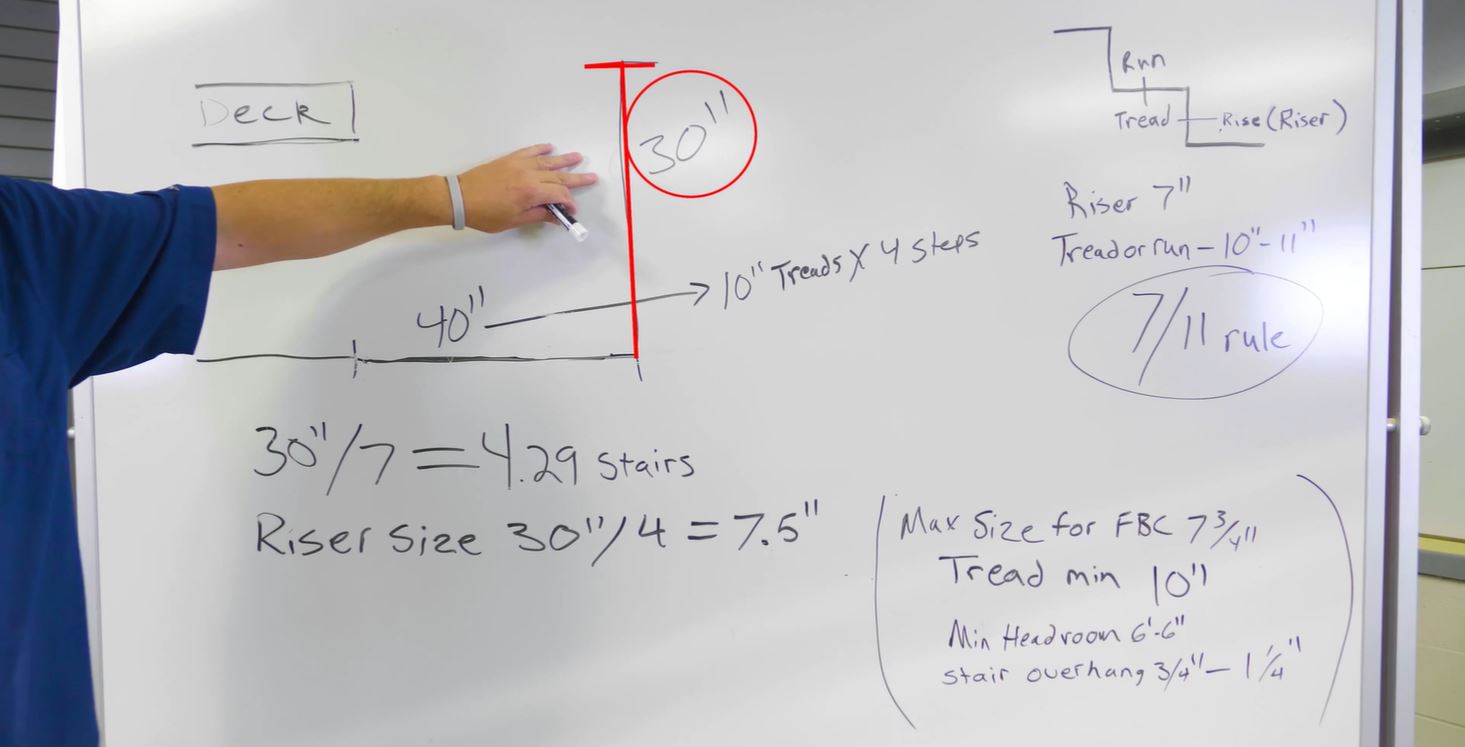 Deck
30"
40" 10" Treads X 4 steps
30"/7 = 4.29 stairs
Riser Size 30"/4 = 7.5"
Run
Tread Rise (Riser)
Riser 7"
Tread or run - 10"-11"
7/11 rule
Max Size for FBC 7 3/4"
Tread min 10"
Min Headroom 6'-6"
stair overhang 3/4" - 1 1/4"